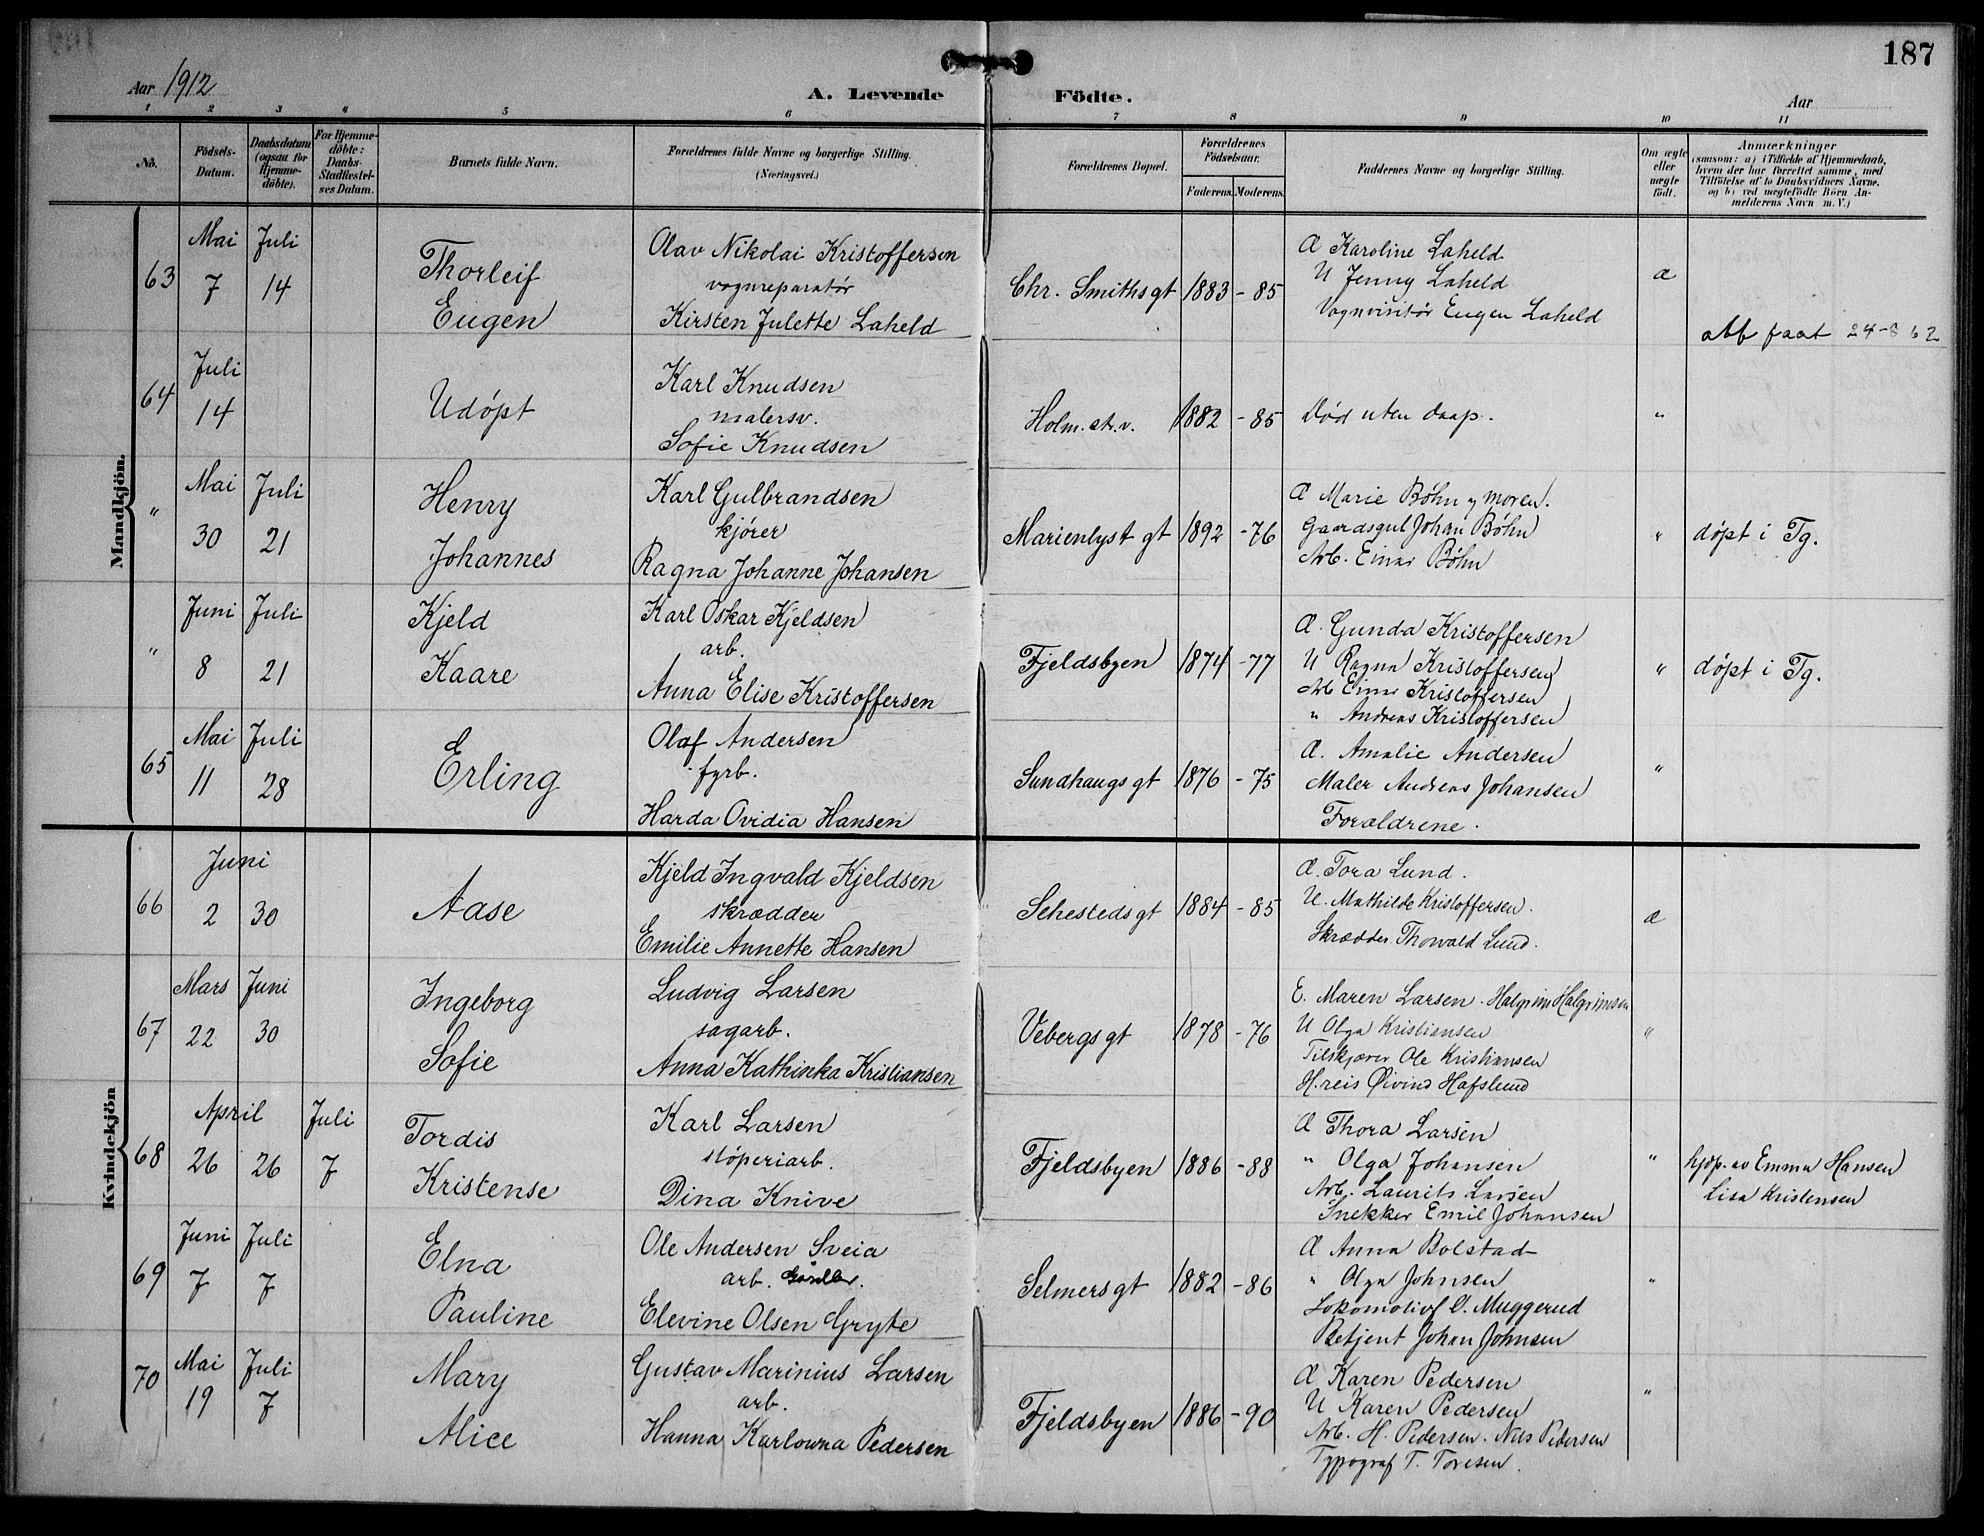 187
Aar 1912
A. Levende Födte.
Aar
1 2 3 4 5 6 7 8 9 10 11
No.
Födsels-Datum.
Daabsdatum (ogsaa for Hjemmedöbte).
For Hjemmedöbte: Daabs-Stadfæstelses Datum.
Barnets fulde Navn.
Forældrenes fulde Navne og borgerlige Stilling. (Næringsvei.)
Forældrenes Bopæl.
Forældrenes Födselsaar.
Faderens. Moderens.
Faddernes Navne og borgerlige Stilling.
Om ægte eller uægte födt.
Anmærkninger
(saasom: a) i Tilfælde af Hjemmedaab, hvem der har forrettet samme, med Tilföielse af to Daabsvidners Navne. og b) ved uægtefödte Börn Anmelderens Navn m. V.)
Mandkjön.
63 Mai 7 Juli 14
Thorleif Eugen
Olav Nikolai Kristoffersen
vognreparatør
Kirsten Julette Laheld
Chr. Smithsgt 1883 - 85
Æ Karoline Laheld
U Jenny Laheld
Vognvisitør Eugen Laheld
æ
att faat 24-8 62
64 Juli 14
Udøpt
Karl Knudsen
malersv.
Sofie Knudsen
Holm. str. v. 1882 - 85
Død uten daap.
"
" Mai 30 Juli 21
Henry Johannes
Karl Gulbrandsen
kjører
Ragna Johanne Johansen
Marienlyst gt 1892 - 76
Æ Marie Bøhn, moren.
Gaardsgut Johan Bøhn
Arb. Einar Bøhn
" døpt i Tg.
" Juni 8 Juli 21
Kjeld Kaare
Karl Oskar Kjeldsen
arb.
Anna Elise Kristoffersen
Fjeldsbyen 1874 - 77
Æ. Gunda Kristoffersen
U Ragna Kristoffersen
Arb Einar Kristoffersen
" Andreas Kristoffersen
" døpt i Tg.
65 Mai 11 Juli 28
Erling
Olaf Andersen
fyrb.
Harda Ovidia Hansen
Sundhaugsgt 1876 - 75
Æ. Amalie Andersen
Maler Andreas Johansen
Forældrene.
"
Kvindekjön
66 Juni 2 30
Aase
Kjeld Ingvald Kjeldsen
skrædder
Emilie Annette Hansen
Sehestedsgt 1884 - 85
Æ. Tora Lund.
U. Mathilde Kristoffersen.
Skrædder Thorvald Lund.
æ
67 Mars 22 Juni 30
Ingeborg Sofie
Ludvig Larsen
sagarb.
Anna Kathinka Kristiansen
Vebergsgt 1878 - 76
E. Maren Larsen. Halgrim Halgrimsen
U Olga Kristiansen
Tilskjærer Ole Kristiansen
H.reis Øivind Hafslund
"
68 April 26 26 Juli 7
Tordis Kristense
Karl Larsen
støperiarb.
Dina Knive
Fjeldsbyen 1886 - 88
Æ Thora Larsen
" Olga Johansen
Arb. Laurits Larsen
Snekker Emil Johansen
" hjdp. av Emma Hansen
Lisa Kristensen
69 Juni 7 Juli 7
Elna Pauline
Ole Andersen Sveia
arb.
Elevine Olsen Gryte
Selmersgt 1882 - 86
Æ Anna Bolstad
" Olga Johnsen
Lokomotivf O. Muggerud
Betjent Johan Johnsen
"
70 Mai 19 Juli 7
Mary Alice
Gustav Marinius Larsen
arb.
Hanna Karlowna Pedersen
Fjeldsbyen 1886 - 90
Æ Karen Pedersen
U Karen Pedersen
Arb. H. Pedersen. Nils Pedersen
Typograf T. Toresen.
"